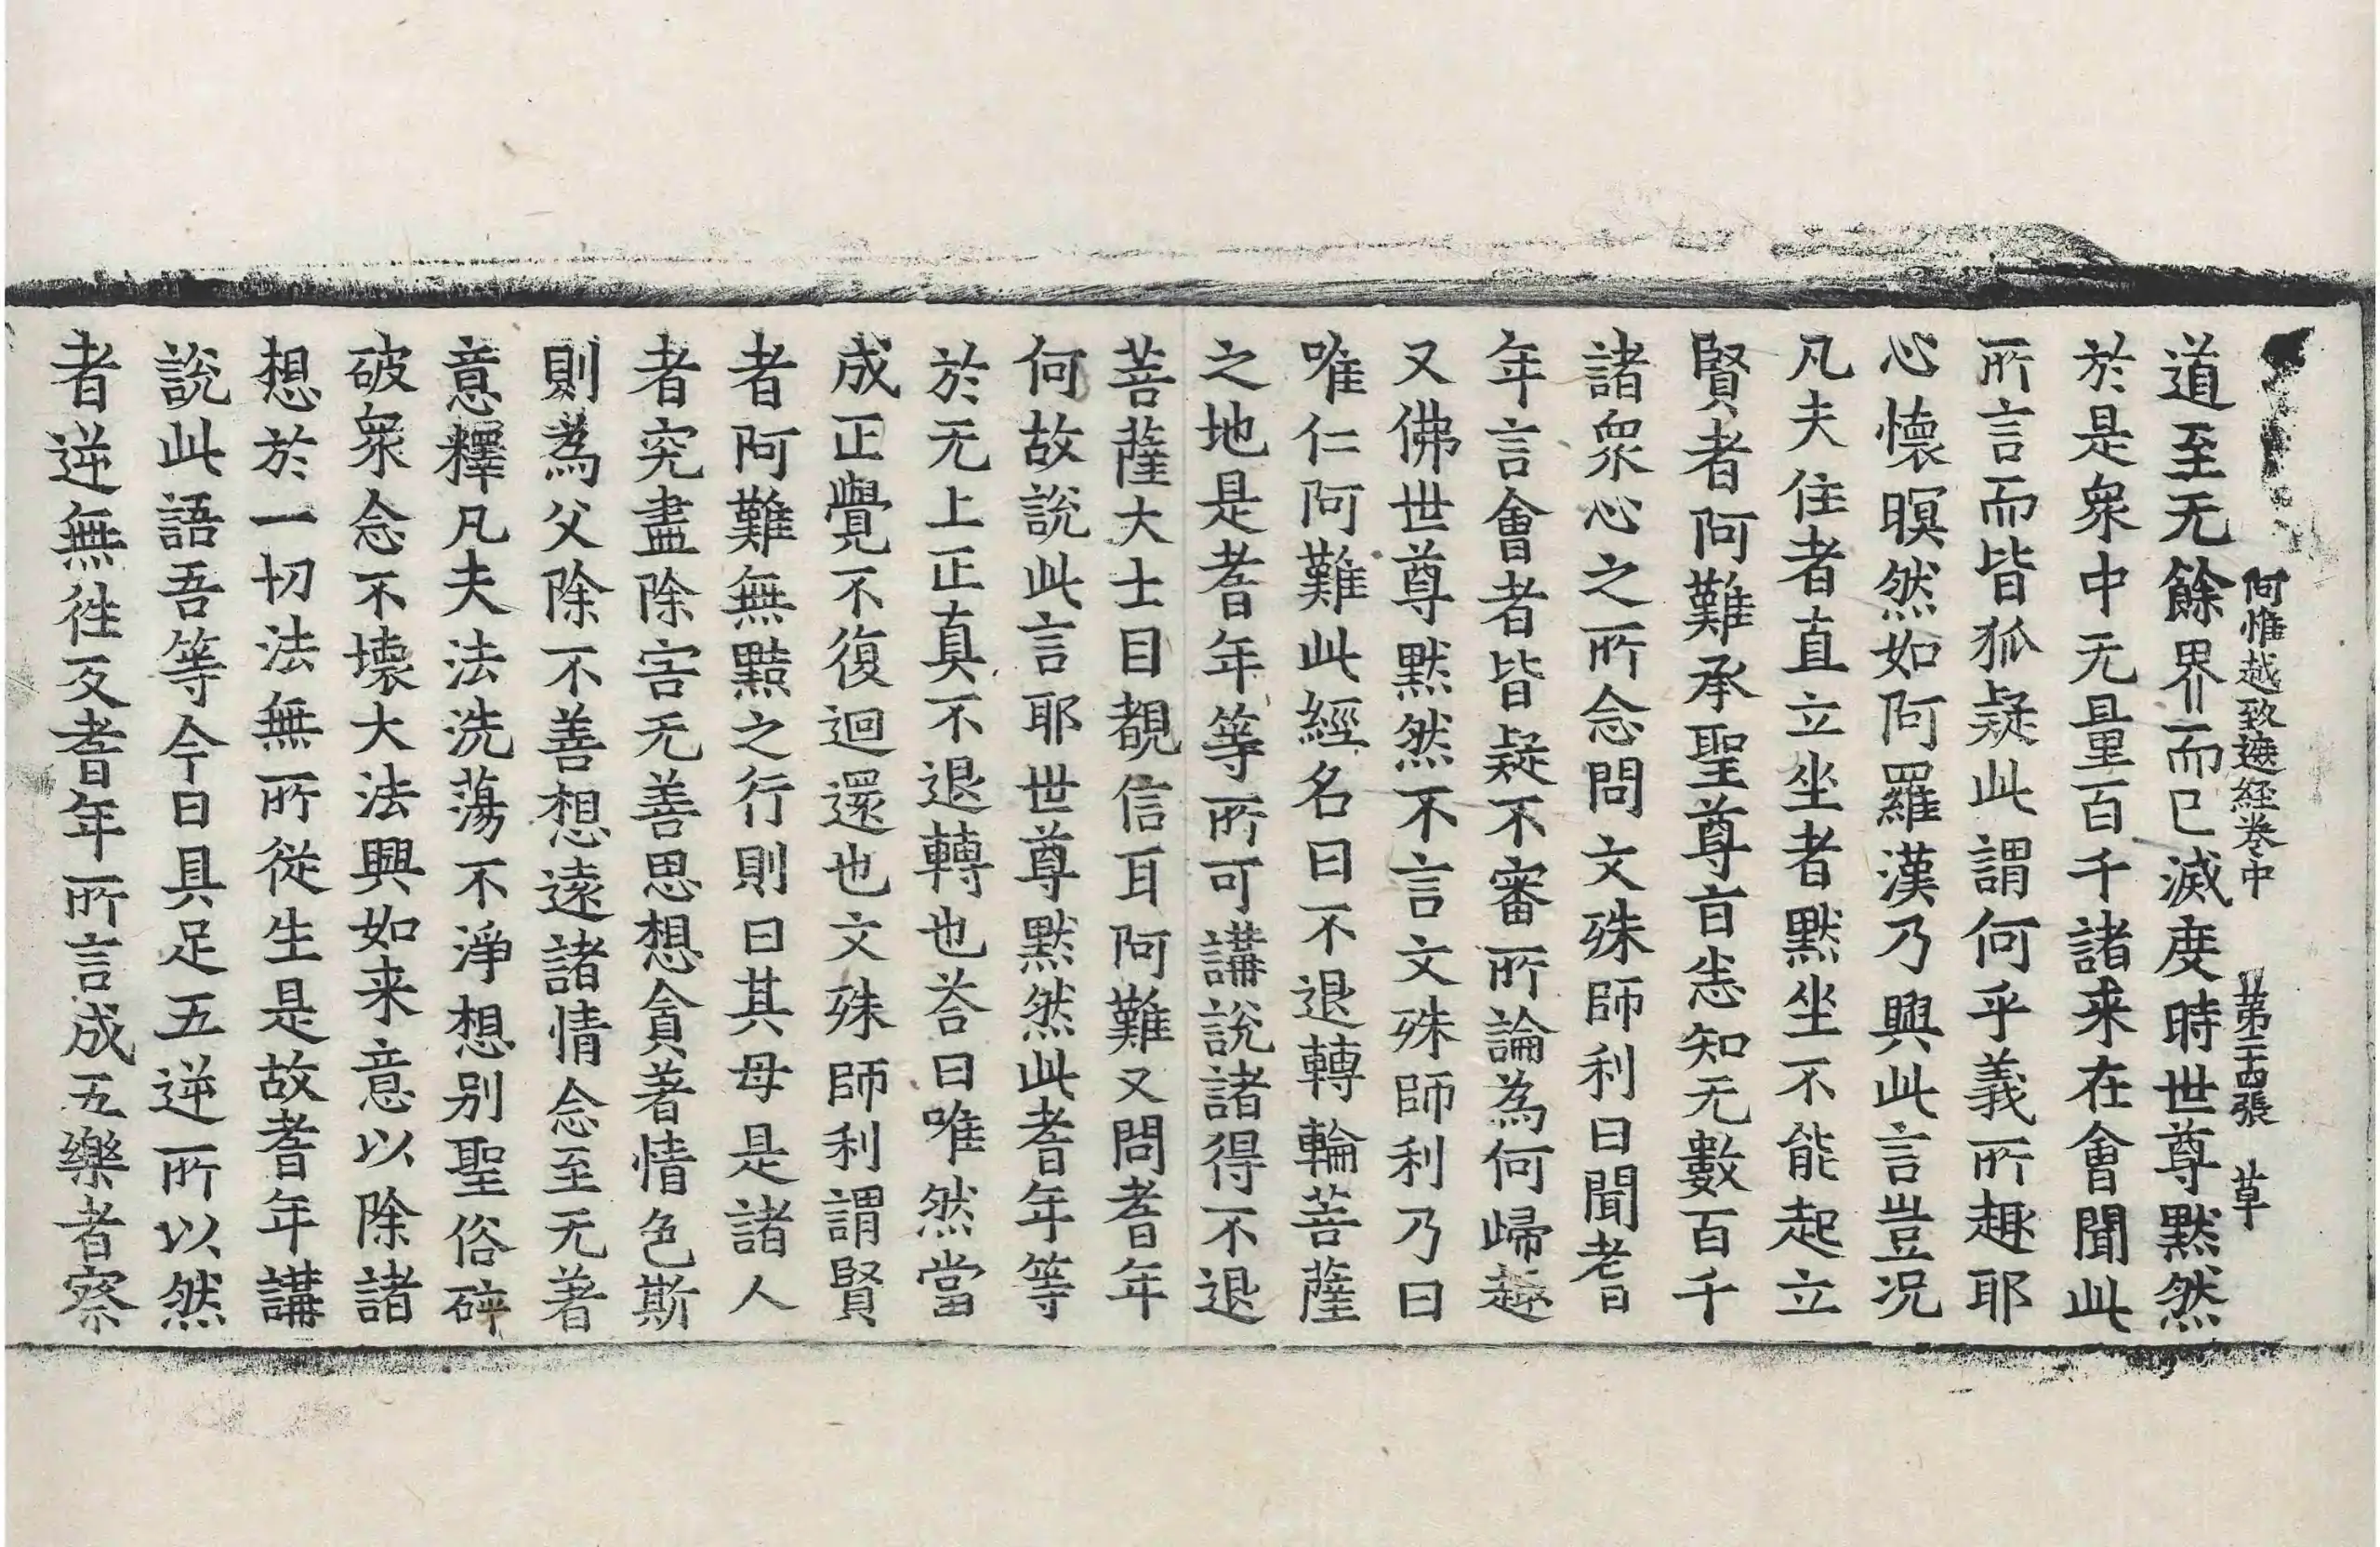 阿惟越致遮經卷中　第二十四張　草
道至无餘界而已滅度時世尊黙然
於是衆中无量百千諸来在會聞此
所言而皆狐疑此謂何乎義所趣耶
心懷暝然如阿羅漢乃興此言豈況
凡夫住者直立坐者黙坐不能起立
賢者阿難承聖尊旨悉知无數百千
諸衆心之所念問文殊師利曰聞耆
年言會者皆疑不審所論為何歸趣
又佛世尊黙然不言文殊師利乃曰
唯仁阿難此經名曰不退轉輪菩薩
之地是耆年等所可講説諸得不退
菩薩大士目覩信耳阿難又問耆年
何故説此言耶世尊黙然此耆年等
於无上正真不退轉也荅曰唯然當
成正覺不復迴還也文殊師利謂賢
者阿難無黠之行則曰其母是諸人
者究盡除害无善思想貪著情色斯
則為父除不善想遠諸情念至无著
意釋凡夫法洗蕩不淨想别聖俗碎
破衆念不壊大法興如来意以除諸
想於一切法無所從生是故耆年講
説此語吾等今日具足五逆所以然
者逆無徃反耆年所言成五樂者察